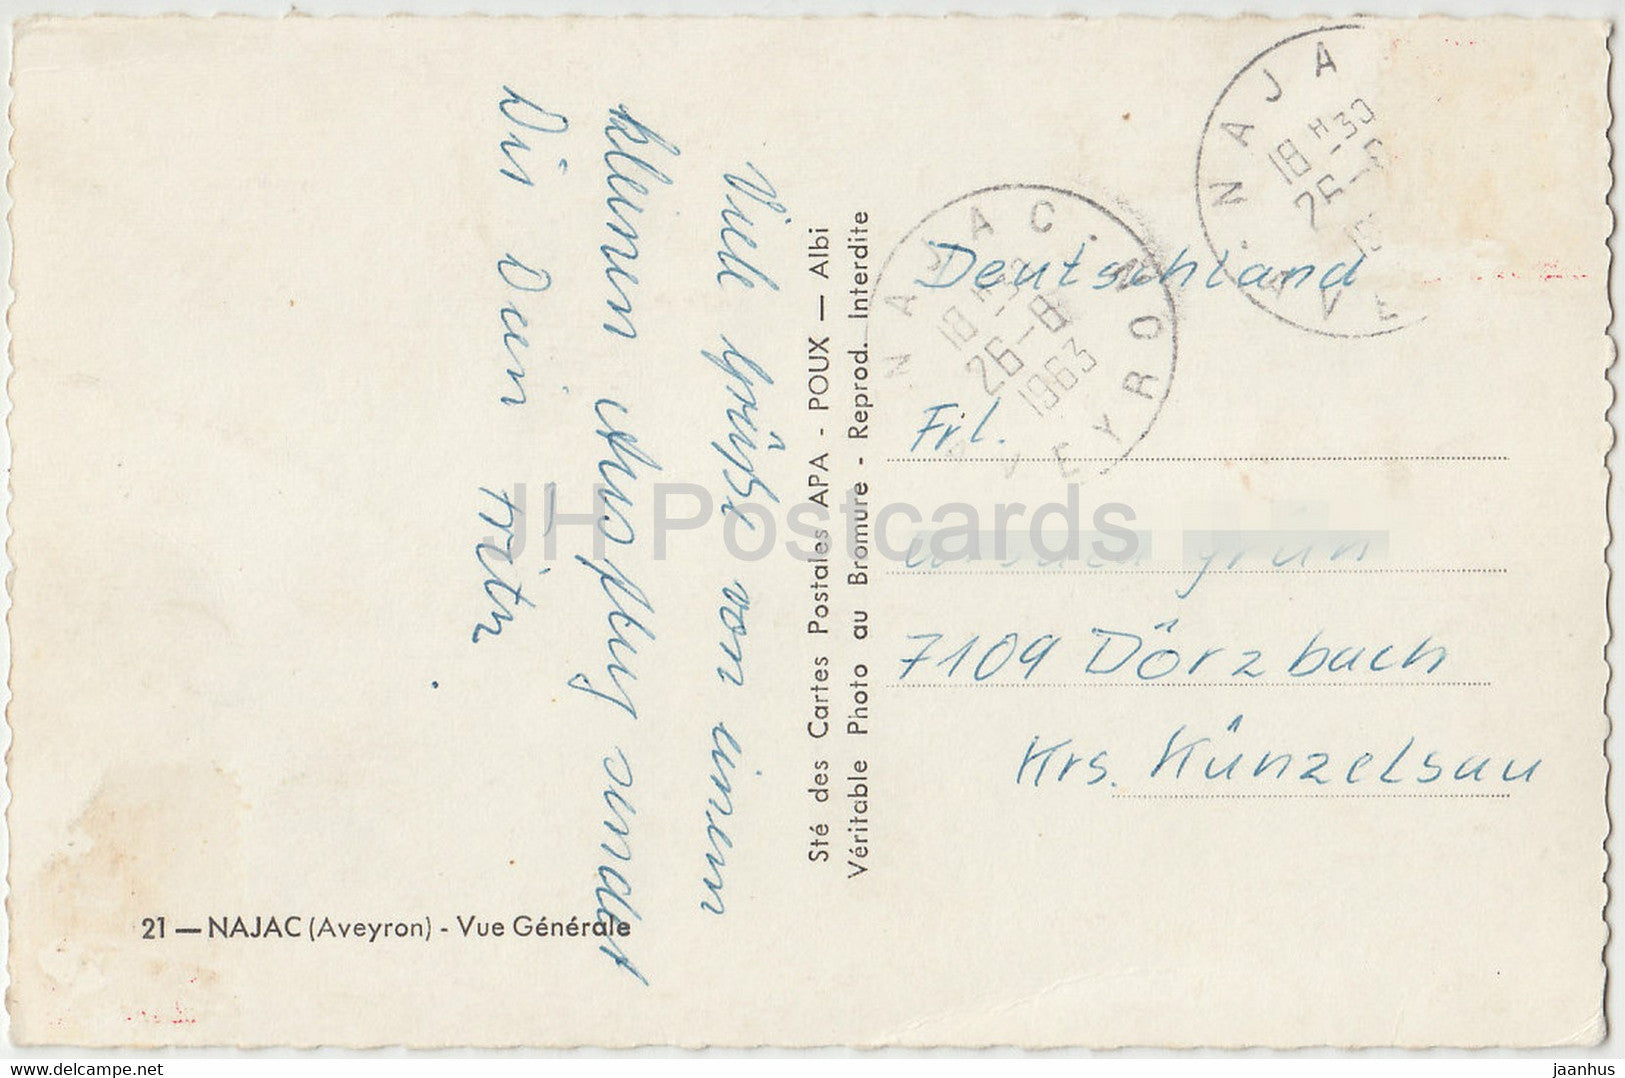 Viele Grüße von einem
kleinen Ausflug sendet
Dir Dein Fritz
21 — NAJAC (Aveyron) - Vue Générale
Sté des Cartes Postales APA - POUX — Albi
Véritable Photo au Bromure - Reprod. Interdite
NAJAC
18 H 30
26-8
1963
AVEYRON
NAJA
18 H 30
26-
AVE
Deutschland
Frl.
Grün
7109 Dörzbach
Krs. Künzelsau
JH Postcards
hipstamp.com
jaanhus